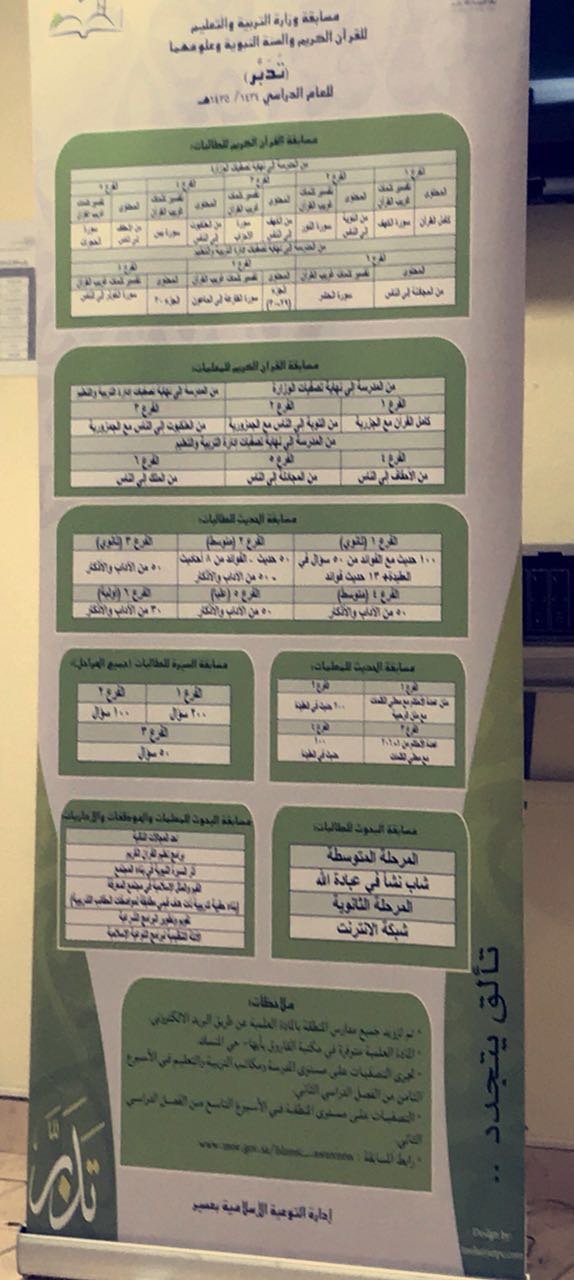 مسابقة وزارة التربية والتعليم
للقرآن الكريم والسنة النبوية وعلومهما
(تدبر)
للعام الدراسي ١٤٣٤/ ١٤٣٥هـ
مسابقة القرآن الكريم للطالبات:
من المدرسة إلى نهاية تصفيات الوزارة
الفرع ١ الفرع ٢ الفرع ٣
المحتوى تفسير كلمات غريب القرآن المحتوى تفسير كلمات غريب القرآن المحتوى تفسير كلمات غريب القرآن المحتوى تفسير كلمات غريب القرآن المحتوى تفسير كلمات غريب القرآن
كامل القرآن سورة الكهف من التوبة إلى الناس سورة النور من الكهف إلى الناس سورة الأحزاب من العنكبوت إلى الناس سورة يس من الأحقاف إلى الناس سورة الحجرات
من المدرسة إلى نهاية تصفيات إدارة التربية والتعليم
المحتوى تفسير كلمات غريب القرآن المحتوى تفسير كلمات غريب القرآن المحتوى تفسير كلمات غريب القرآن
من المجادلة إلى الناس سورة الحشر الجزء (٢٩-٣٠) سورة القارعة إلى الماعون الجزء ٣٠ إلى الناس
مسابقة القرآن الكريم للمعلمات:
من المدرسة إلى نهاية تصفيات الوزارة من المدرسة إلى نهاية تصفيات إدارة التربية والتعليم
الفرع ١ الفرع ٢ الفرع ٣
كامل القرآن مع الجزرية من التوبة إلى الناس مع الجمزورية من العنكبوت إلى الناس مع الجمزورية
من المدرسة إلى نهاية تصفيات إدارة التربية والتعليم
الفرع ٤ الفرع ٥ الفرع ٦
من الأحقاف إلى الناس من المجادلة إلى الناس من الملك إلى الناس
مسابقة الحديث للطالبات:
الفرع ١ (ثانوي) الفرع ٢ (متوسط) الفرع ٣ (ثانوي)
١٠٠ حديث مع الفوائد من ٥٠ سؤال في العقيدة+ ١٣ حديث فوائد ٥٠ حديث - الفوائد من ٨ أحاديث - ٥٠ من الآداب والأذكار ٥٠ من الآداب والأذكار
الفرع ٤ (متوسط) الفرع ٥ (عليا) الفرع ٦ (أولية)
٥٠ من الآداب والأذكار ٥٠ من الآداب والأذكار ٣٠ من الآداب والأذكار
مسابقة الحديث للمعلمات:
الفرع ١ الفرع ٢
متن عمدة الأحكام مع معاني الكلمات مع متن الرحبية ٢٠٠ حديث في العقيدة
الفرع ٣ الفرع ٤
عمدة الأحكام مع معاني الكلمات ١٠٠ حديث في العقيدة
مسابقة السيرة للطالبات (جميع المراحل):
الفرع ١ الفرع ٢
٢٠٠ سؤال ١٠٠ سؤال
الفرع ٣
٥٠ سؤال
مسابقة البحوث للطالبات:
المرحلة المتوسطة
شاب نشأ في عبادة الله
المرحلة الثانوية
شبكة الانترنت
مسابقة البحوث للمعلمات والموظفات والإداريات
أحد المجالات التالية
برامج تعليم القرآن الكريم
أثر السيرة النبوية في بناء المجتمع
القيم والمثل الإسلامية في مجتمع المعرفة
(بناء حقيبة تدريبية ذات هدف قيمي مطابقة لمواصفات الحقائب التدريبية)
تقويم وتطوير البرامج
الأدلة التنظيمية لبرامج التوعية الإسلامية
ملاحظات:
- تم تزويد جميع مدارس المنطقة بالمادة العلمية عن طريق البريد الالكتروني.
- المادة العلمية متوفرة في مكتبة الفاروق بأبها- حي المنسك.
- تجرى التصفيات على مستوى المدرسة ومكاتب التربية والتعليم في الأسبوع
الثامن من الفصل الدراسي الثاني.
- التصفيات على مستوى المنطقة في الأسبوع التاسع من الفصل الدراسي
الثاني.
- رابط المسابقة :
إدارة التوعية الإسلامية بعسير
تألق يتجدد ..
تدبر
Design by: